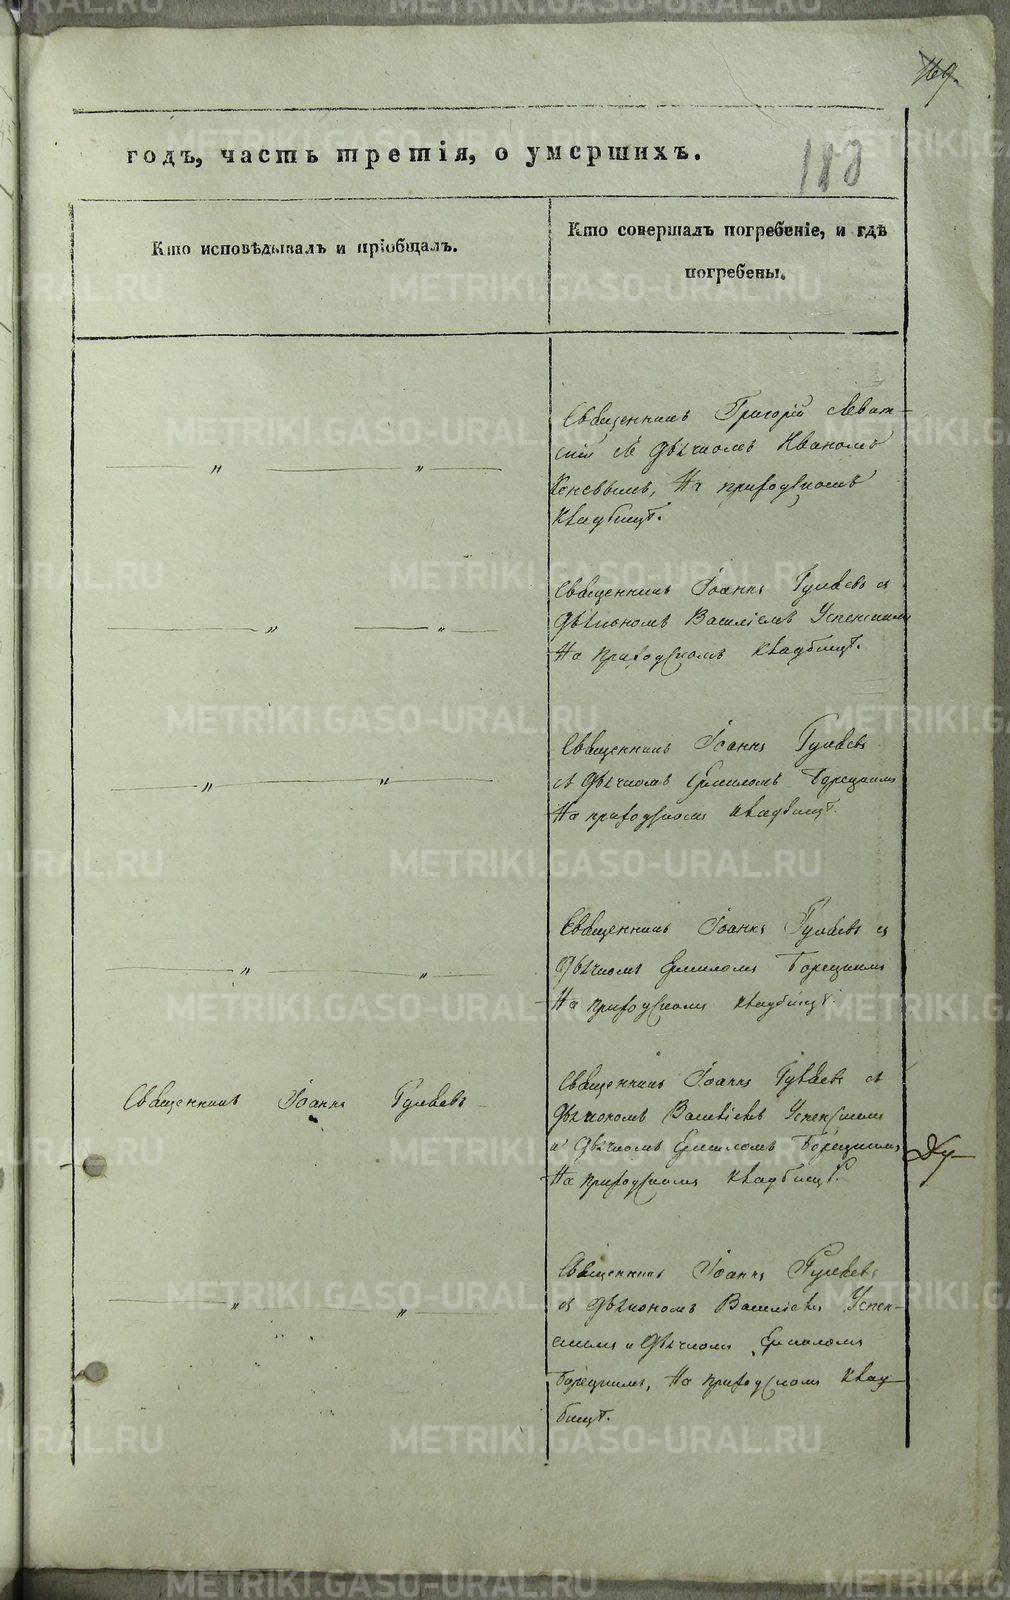 169.
годъ, часть третія, о умершихъ.
Кто исповѣдывалъ и пріобщалъ.
Кто совершалъ погребеніе, и гдѣ
погребены.
Священникъ Григорій Левит-
скій съ Дьячкомъ Иваномъ
На приходскомъ
Кладбищѣ.
Священникъ Іоаннъ Гуляевъ съ
Діакономъ Василіемъ Успенскимъ
На приходскомъ кладбищѣ.
Священникъ Іоаннъ Гуляевъ
съ Дьячкомъ Ермиломъ Борецкимъ
На приходскомъ кладбищѣ.
Священникъ Іоаннъ Гуляевъ съ
Дьячкомъ Ермиломъ Борецкимъ
На приходскомъ кладбищѣ.
Священникъ Іоаннъ Гуляевъ
Священникъ Іоаннъ Гуляевъ съ
Діакономъ Василіемъ Успенскимъ
и Дьячкомъ Ермиломъ Борецкимъ
На приходскомъ кладбищѣ.
Священникъ Іоаннъ Гуляевъ
съ Діакономъ Василіемъ Успен-
скимъ и Дьячкомъ Ермиломъ
Борецкимъ, На приходскомъ клад-
бищѣ.
METRIKI.GASO-URAL.RU